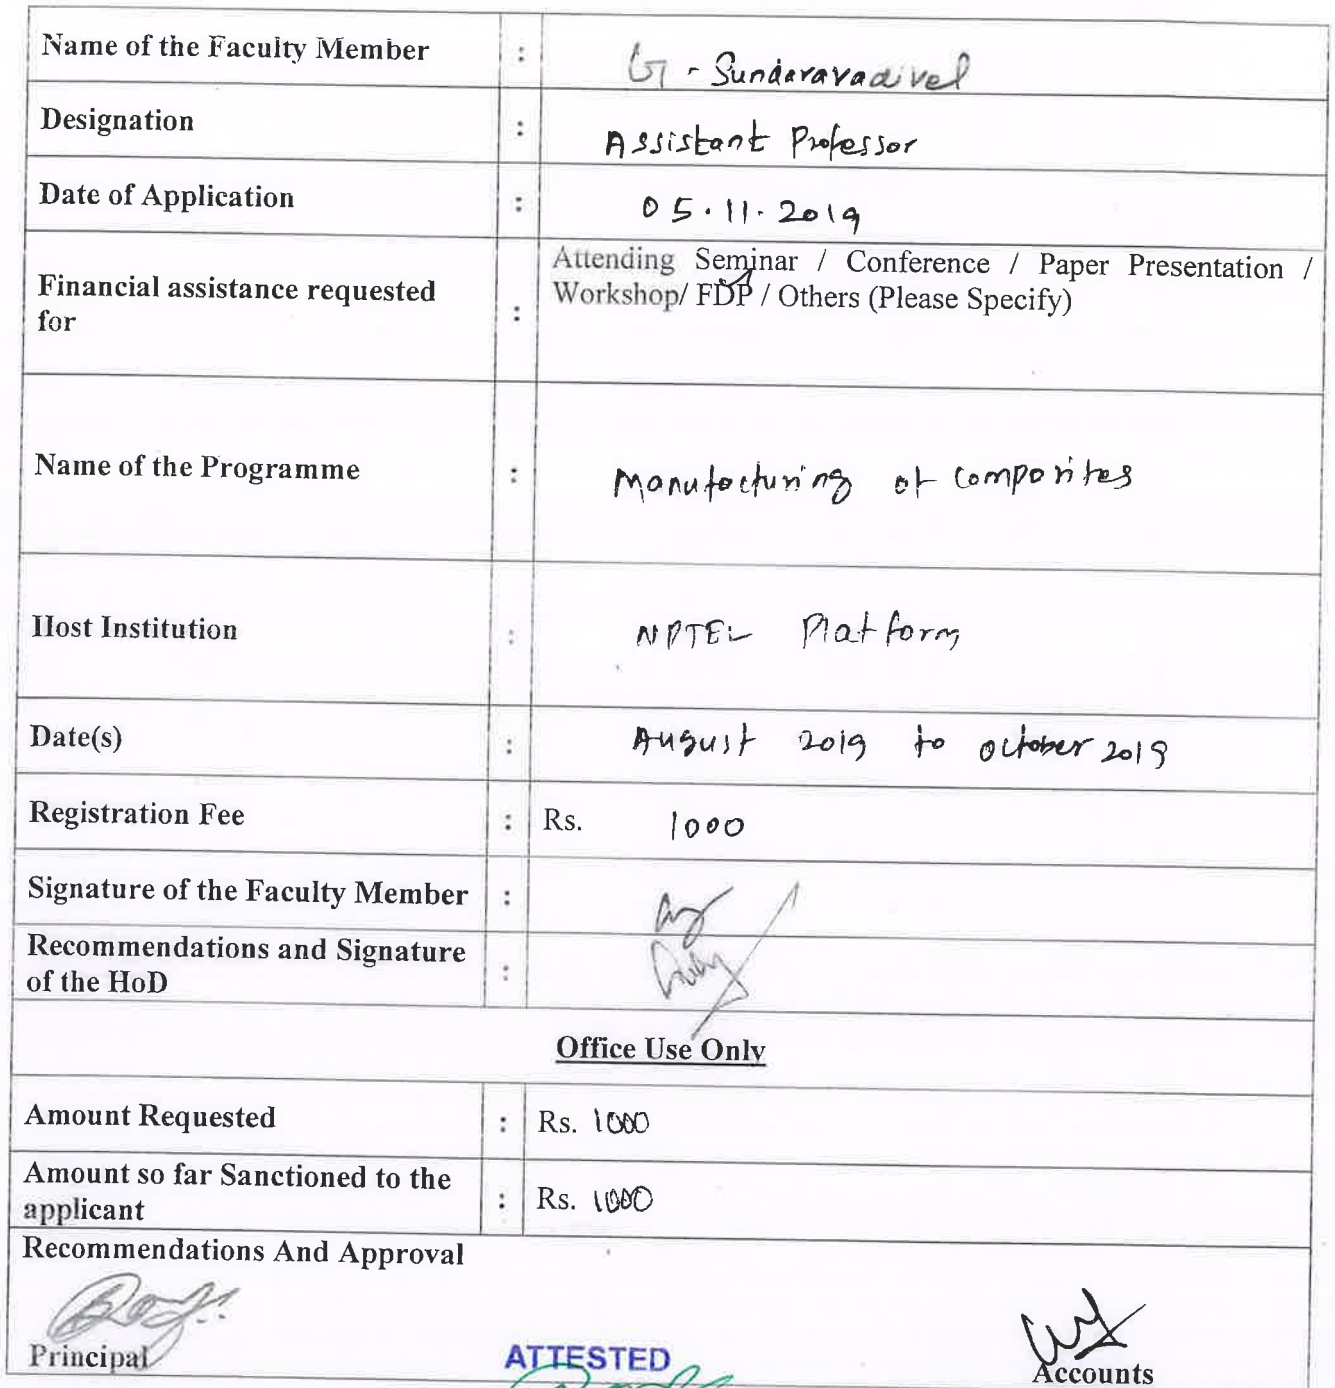 Name of the Faculty Member : G. Sundaravadivel
Designation : Assistant Professor
Date of Application : 05.11.2019
Financial assistance requested for : Attending Seminar / Conference / Paper Presentation /
Workshop/ FDP / Others (Please Specify)
Name of the Programme : Manufacturing of composites
Host Institution : NPTEL Platform
Date(s) : August 2019 to october 2019
Registration Fee : Rs. 1000
Signature of the Faculty Member :
Recommendations and Signature
of the HoD :
Office Use Only
Amount Requested : Rs. 1000
Amount so far Sanctioned to the
applicant : Rs. 1000
Recommendations And Approval
Principal ATTESTED Accounts